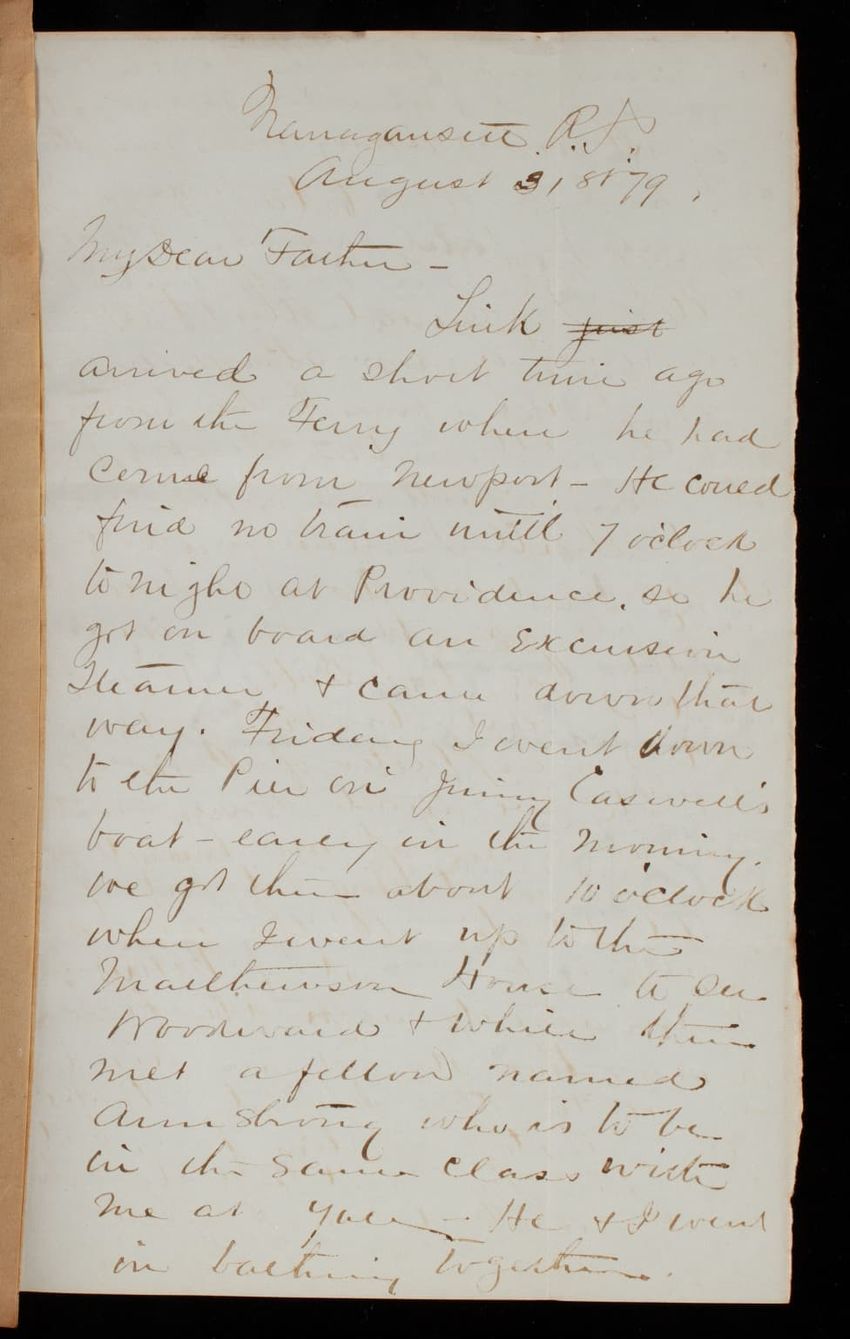 Narragansett R.I.
August 31st 79.
My Dear Father –
Link just
arrived a short time ago
from the Ferry where he had
Come from Newport – He could
find no train untill 7 o'clock
to night at Providence, so he
got on board an Excursion
Steamer & came down that
way. Friday I went down
to the Pier on Jimmy Caswell's
boat – early in the morning.
We got there about 10 o'clock
when I went up to the
Matthewson House to see
Woodward & while there
met a fellow named
Armstrong who is to be
in the same class with
me at Yale – He & I went
in bathing together.